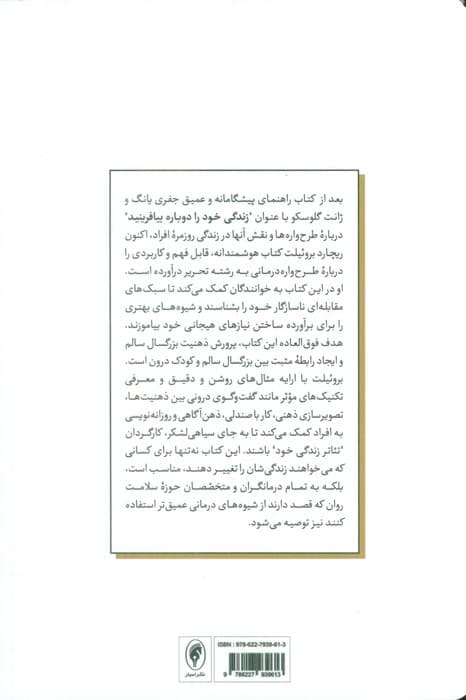 بعد از کتاب راهنمای پیشگامانه و عمیق جفری یانگ و
ژانت گلوسکو با عنوان "زندگی خود را دوباره بیافرینید"
دربارهٔ طرح‌واره‌ها و نقش آنها در زندگی روزمرهٔ افراد، اکنون
ریچارد بروئیلت کتاب هوشمندانه، قابل فهم و کاربردی را
دربارهٔ طرح‌واره‌درمانی به رشته تحریر درآورده است.
او در این کتاب به خوانندگان کمک می‌کند تا سبک‌های
مقابله‌ای ناسازگار خود را بشناسند و شیوه‌های بهتری
را برای برآورده ساختن نیازهای هیجانی خود بیاموزند.
هدف فوق‌العاده این کتاب، پرورش ذهنیت بزرگسال سالم
و ایجاد رابطهٔ مثبت بین بزرگسال سالم و کودک درون است.
بروئیلت با ارایه مثال‌های روشن و دقیق و معرفی
تکنیک‌های مؤثر مانند گفت‌وگوی درونی بین ذهنیت‌ها،
تصویرسازی ذهنی، کار با صندلی، ذهن‌آگاهی و روزانه‌نویسی
به افراد کمک می‌کند تا به جای سیاهی‌لشکر، کارگردان
"تئاتر زندگی خود" باشند. این کتاب نه‌تنها برای کسانی
که می‌خواهند زندگی‌شان را تغییر دهند، مناسب است،
بلکه به تمام درمانگران و متخصّصان حوزهٔ سلامت
روان که قصد دارند از شیوه‌های درمانی عمیق‌تر استفاده
کنند نیز توصیه می‌شود.
ISBN : 978-622-7939-61-3
9 786227 939613
نشر اسبار